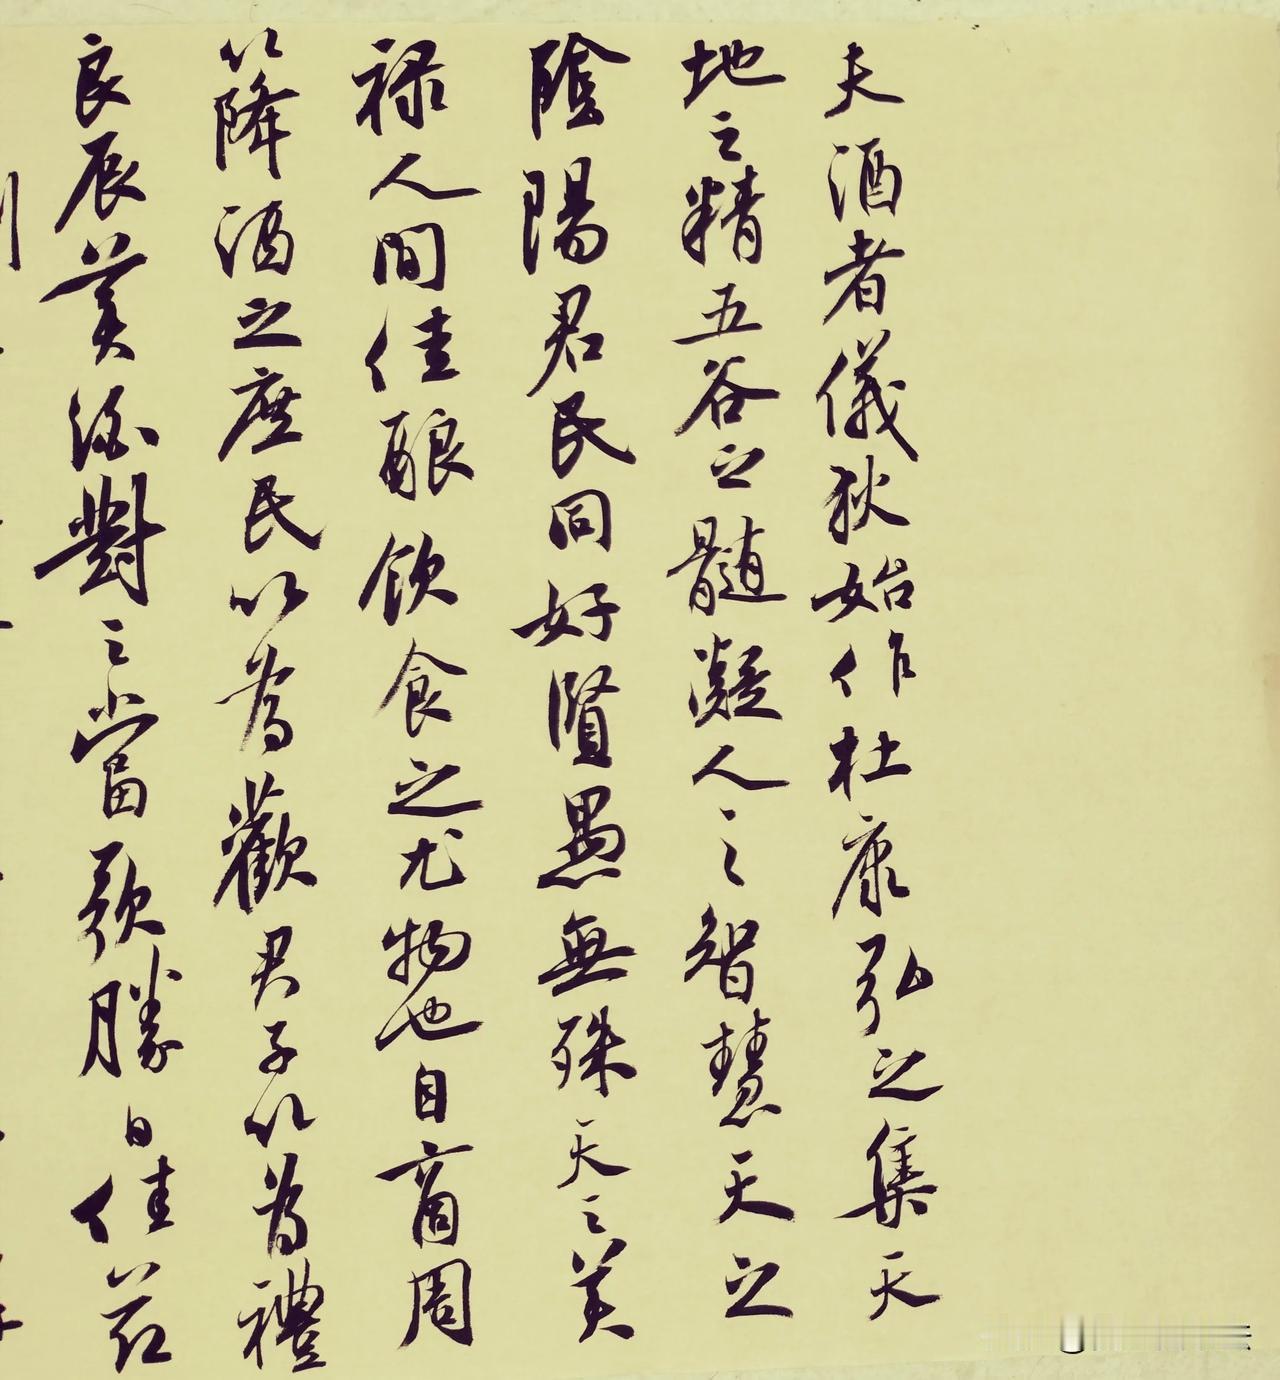 夫酒者儀狄始作杜康弘之集天
地之精五谷之髓凝人之智慧天之
陰陽君民同好賢愚無殊天之美
禄人間佳酿飲食之尤物也自商周
以降酒之庶民以為歡君子以為禮
良辰美酒對之當歌勝日佳茗